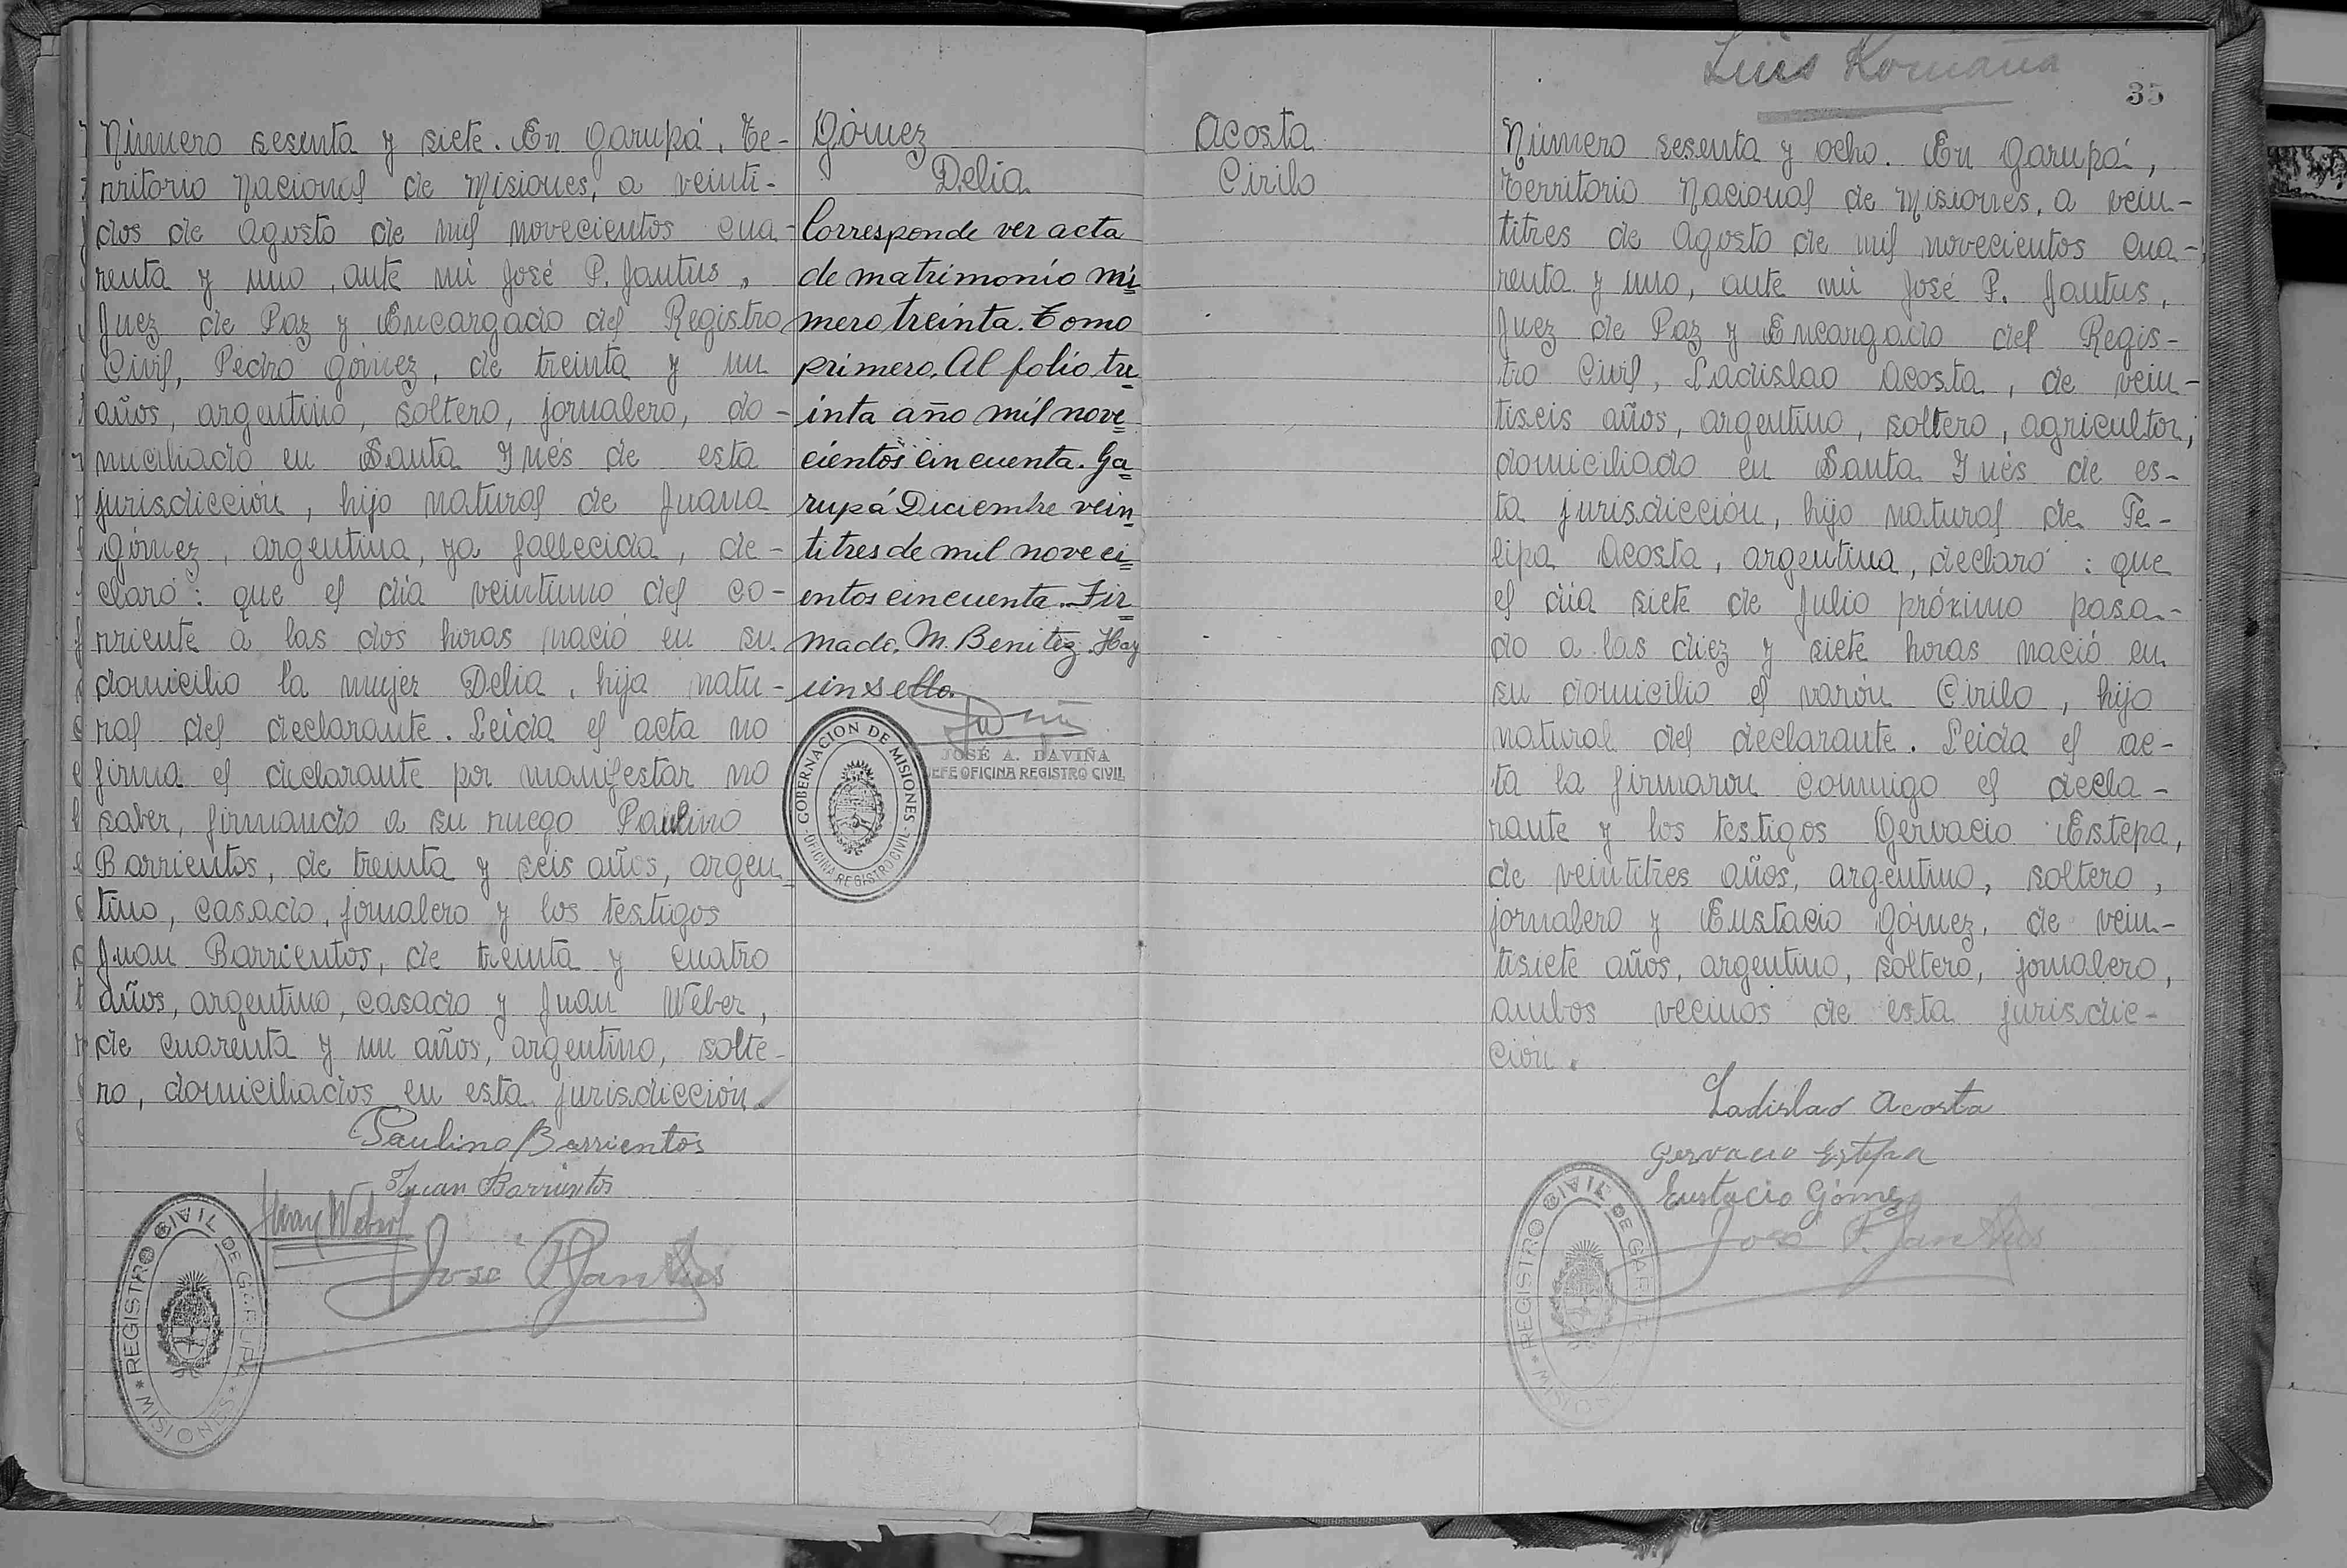 Número sesenta y siete. En Garupá, Te-
rritorio Nacional de Misiones, a veinti-
dos de Agosto de mil novecientos cua-
renta y uno, ante mi José P. Jantus,
Juez de Paz y Encargado del Registro
Civil, Pedro Gómez, de treinta y un
años, argentino, soltero, jornalero, do-
miciliado en Santa Inés de esta
jurisdicción, hijo natural de Juana
Gómez, argentina, ya fallecida, de-
claró: que el día veintiuno del co-
rriente a las dos horas nació en su
domicilio la mujer Delia, hija natu-
ral del declarante. Leida el acta no
firma el declarante por manifestar no
saber, firmando a su ruego Paulino
Barrientos, de treinta y seis años, argen-
tino, casado, jornalero y los testigos
Juan Barrientos, de treinta y cuatro
años, argentino, casado y Juan Weber,
de cuarenta y un años, argentino, solte-
ro, domiciliados en esta jurisdicción.
Paulino Barrientos
Juan Barrientos
Juan Weber
José P. Jantus
REGISTRO CIVIL DE GARUPA
* MISIONES *
Gómez
Delia
Corresponde ver acta
de matrimonio nú
mero treinta. Tomo
primero. Al folio tre
inta año mil nove
cientos cincuenta. Ga
rupá Diciembre vein
titres de mil noveci
entos cincuenta. Fir
mado. M. Benitez. Hay
un sello.
JOSÉ A. DAVIÑA
JEFE OFICINA REGISTRO CIVIL
GOBERNACION DE MISIONES
OFICINA REGISTRO CIVIL
Acosta
Cirilo
Luis Romaña
35
Número sesenta y ocho. En Garupá,
Territorio Nacional de Misiones, a vein-
titres de Agosto de mil novecientos cua-
renta y uno, ante mi José P. Jantus,
Juez de Paz y Encargado del Regis-
tro Civil, Ladislao Acosta, de vein-
tiseis años, argentino, soltero, agricultor,
domiciliado en Santa Inés de es-
ta jurisdicción, hijo natural de Fe-
lipa Acosta, argentina, declaró: que
el día siete de Julio próximo pasa-
do a las diez y siete horas nació en
su domicilio el varón Cirilo, hijo
natural del declarante. Leida el ac-
ta la firmaron conmigo el decla-
rante y los testigos Gervacio Estepa,
de veintitres años, argentino, soltero,
jornalero y Eustacio Gómez, de vein-
tisiete años, argentino, soltero, jornalero,
ambos vecinos de esta jurisdic-
ción.
Ladislao Acosta
Gervacio Estepa
Eustacio Gómez
José P. Jantus
REGISTRO CIVIL DE GARUPA
* MISIONES